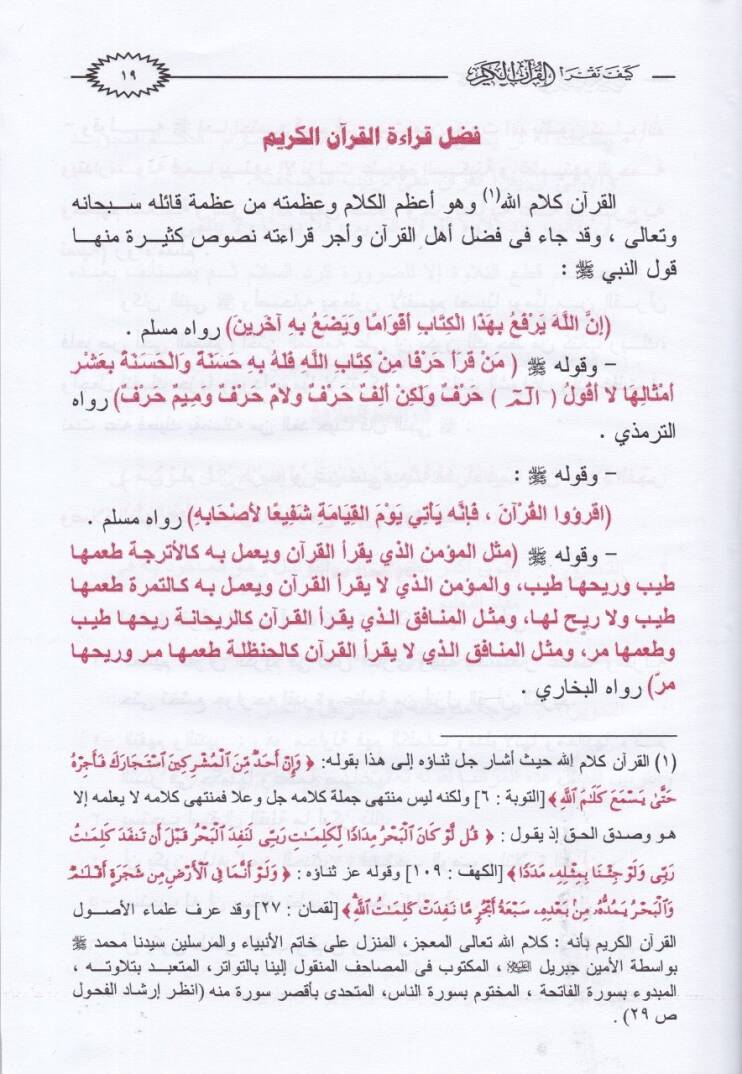 كيف نقرأ القرآن الكريم ١٩
فضل قراءة القرآن الكريم
القرآن كلام الله(١) وهو أعظم الكلام وعظمته من عظمة قائله سبحانه
وتعالى ، وقد جاء فى فضل أهل القرآن وأجر قراءته نصوص كثيرة منها
قول النبي ﷺ :
(إِنَّ اللَّهَ يَرْفَعُ بِهَذَا الكِتَابِ أَقْوَامًا وَيَضَعُ بِهِ آخَرِينَ) رواه مسلم .
– وقوله ﷺ ( مَنْ قَرَأَ حَرْفًا مِنْ كِتَابِ اللهِ فَلَهُ بِهِ حَسَنَةٌ وَالْحَسَنَةُ بِعَشْرِ
أَمْثَالِهَا لا أَقُولُ ( الٓمٓ ) حَرْفٌ وَلَكِنْ أَلِفٌ حَرْفٌ وَلامٌ حَرْفٌ وَمِيمٌ حَرْفٌ) رواه
الترمذي .
– وقوله ﷺ :
(اقرؤوا القُرْآنَ ، فَإِنَّه يَأتِي يَوْمَ القِيَامَةِ شَفِيعًا لأَصْحَابِهِ) رواه مسلم .
– وقوله ﷺ (مثل المؤمن الذي يقرأ القرآن ويعمل به كالأترجة طعمها
طيب وريحها طيب، والمؤمن الذي لا يقرأ القرآن ويعمل به كالتمرة طعمها
طيب ولا ريح لها، ومثل المنافق الذي يقرأ القرآن كالريحانة ريحها طيب
وطعمها مر، ومثل المنافق الذي لا يقرأ القرآن كالحنظلة طعمها مر وريحها
مرّ) رواه البخاري .
(١) القرآن كلام الله حيث أشار جل ثناؤه إلى هذا بقوله: ﴿ وَإِنْ أَحَدٌ مِّنَ ٱلْمُشْرِكِينَ ٱسْتَجَارَكَ فَأَجِرْهُ
حَتَّىٰ يَسْمَعَ كَلَٰمَ ٱللَّهِ ﴾ [التوبة : ٦] ولكنه ليس منتهى جملة كلامه جل وعلا فمنتهى كلامه لا يعلمه إلا
هو وصدق الحق إذ يقول : ﴿ قُل لَّوْ كَانَ ٱلْبَحْرُ مِدَادًا لِّكَلِمَٰتِ رَبِّى لَنَفِدَ ٱلْبَحْرُ قَبْلَ أَن تَنفَدَ كَلِمَٰتُ
رَبِّى وَلَوْ جِئْنَا بِمِثْلِهِۦ مَدَدًا ﴾ [الكهف : ١٠٩] وقوله عز ثناؤه : ﴿ وَلَوْ أَنَّمَا فِى ٱلْأَرْضِ مِن شَجَرَةٍ أَقْلَٰمٌ
وَٱلْبَحْرُ يَمُدُّهُۥ مِنۢ بَعْدِهِۦ سَبْعَةُ أَبْحُرٍ مَّا نَفِدَتْ كَلِمَٰتُ ٱللَّهِ ﴾ [لقمان : ٢٧] وقد عرف علماء الأصول
القرآن الكريم بأنه : كلام الله تعالى المعجز، المنزل على خاتم الأنبياء والمرسلين سيدنا محمد ﷺ
بواسطة الأمين جبريل عليه السلام ، المكتوب فى المصاحف المنقول إلينا بالتواتر، المتعبد بتلاوته ،
المبدوء بسورة الفاتحة ، المختوم بسورة الناس، المتحدى بأقصر سورة منه (انظر إرشاد الفحول
ص ٢٩) .